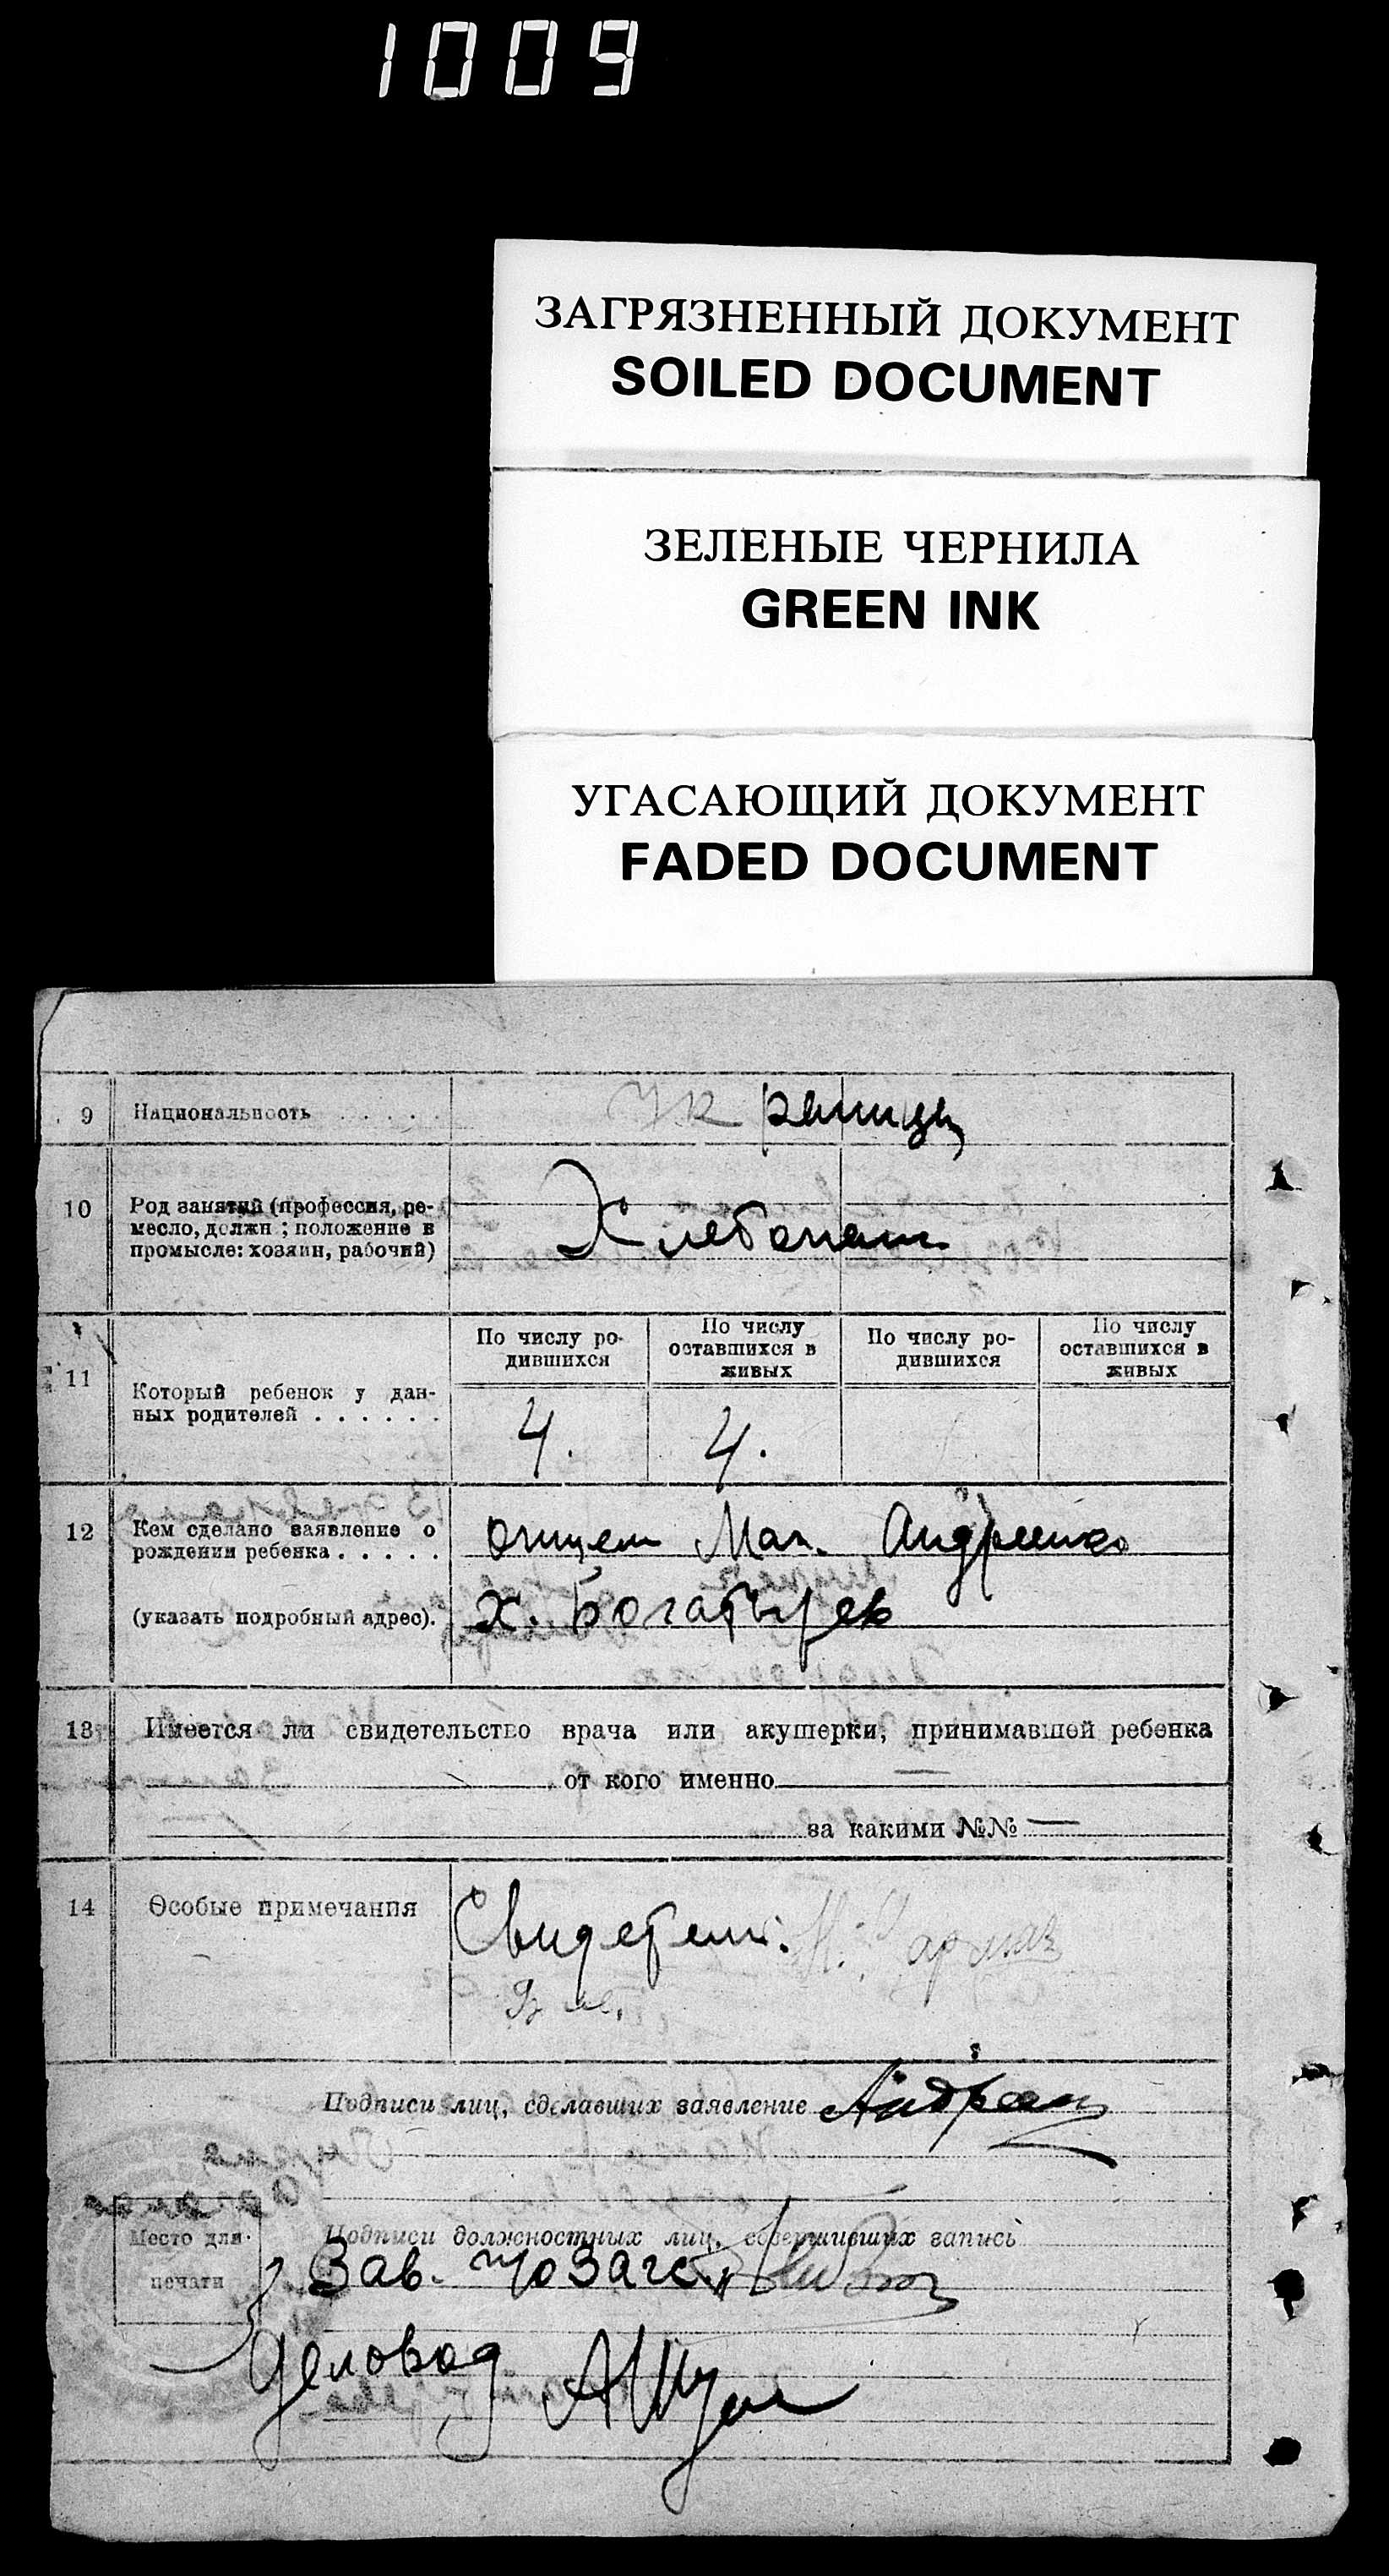 1009
ЗАГРЯЗНЕННЫЙ ДОКУМЕНТ
SOILED DOCUMENT
ЗЕЛЕНЫЕ ЧЕРНИЛА
GREEN INK
УГАСАЮЩИЙ ДОКУМЕНТ
FADED DOCUMENT
9 Национальность . . . .
10 Род занятий (профессия, ре-
месло, должн ; положение в
промысле: хозяин, рабочий)
Хлебопаш.
11 Который ребенок у дан-
ных родителей . . . . . .
По числу ро-
дившихся
По числу
оставшихся в
живых
По числу ро-
дившихся
По числу
оставшихся в
живых
4. 4.
12 Кем сделано заявление о
рождении ребенка . . . . .
(указать подробный адрес).
отцем Андреенко
х. Богатырев
13 Имеется ли свидетельство врача или акушерки, принимавшей ребенка
от кого именно
за какими №№ —
14 Особые примечания
Свидетели:
Подписи лиц, сделавших заявление
Подписи должностных лиц, совершивших запись
Место для
печати
Зав.
Деловод